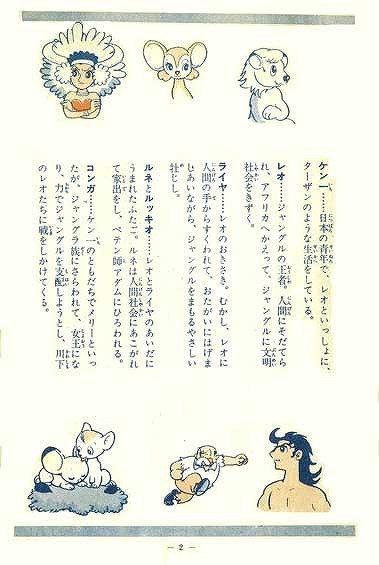 ケン一……日本の青年で、レオといっしょに、
ターザンのような生活をしている。
レオ……ジャングルの王者。人間にそだてら
れ、アフリカへかえって、ジャングルに文明
社会をきずく。
ライヤ……レオのおきさき。むかし、レオに
人間の手からすくわれて、おたがいにはげま
しあいながら、ジャングルをまもるやさしい
牡じし。
ルネとルッキオ……レオとライヤのあいだに
うまれたふたご。ルネは人間社会にあこがれ
て家出をし、ペテン師アダムにひろわれる。
コンガ……ケン一のともだちでメリーといっ
たが、ジャングラ族にさらわれて、女王にな
り、力でジャングルを支配しようとし、川下
のレオたちに戦をしかけてくる。
— 2 —